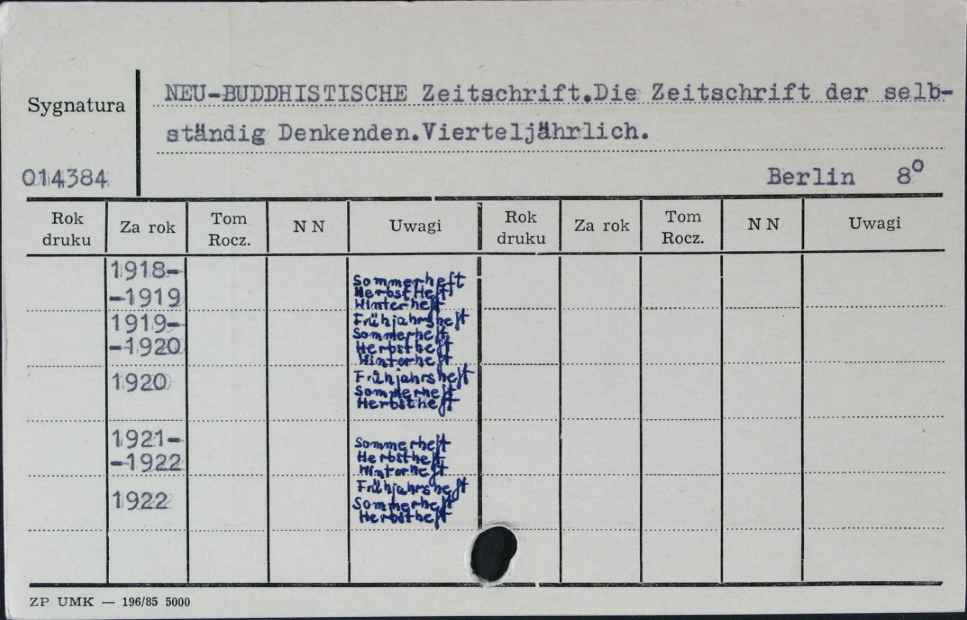 NEU-BUDDHISTISCHE Zeitschrift.Die Zeitschrift der selb-
Sygnatura
ständig Denkenden.Vierteljährlich.
014384
Berlin 8°
Rok druku
Za rok
Tom Rocz.
N N
Uwagi
Rok druku
Za rok
Tom Rocz.
N N
Uwagi
1918-
-1919
Sommerheft
Herbst Heft
Winterheft
1919-
-1920
Frühjahrsheft
Sommerheft
Herbstheft
Winterheft
1920
Frühjahrsheft
Sommerheft
Herbstheft
1921-
-1922
Sommerheft
Herbstheft
Winterheft
1922
Frühjahrsheft
Sommerheft
Herbstheft
ZP UMK — 196/85 5000